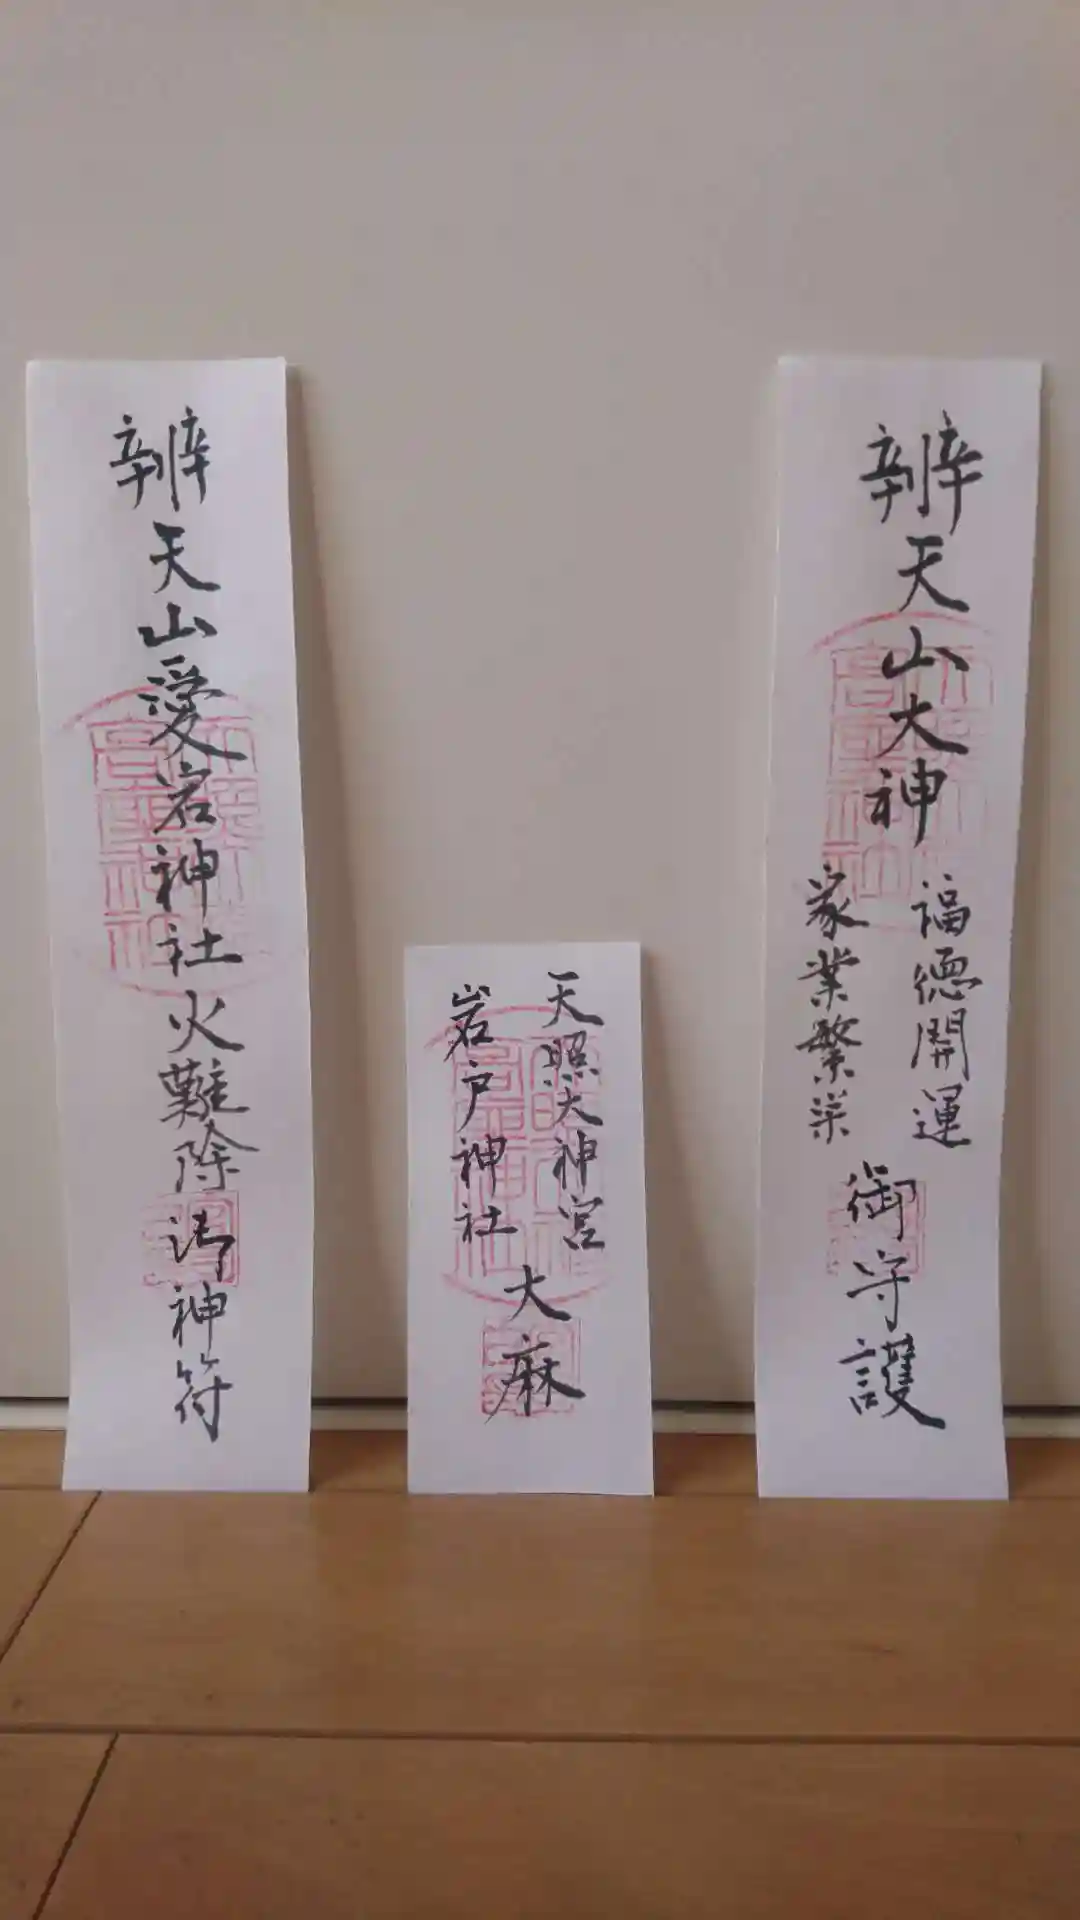 辨天山愛宕神社火難除御神符
天照大神宮
岩戸神社
大麻
辨天山大神
福徳開運
家業繁栄
御守護